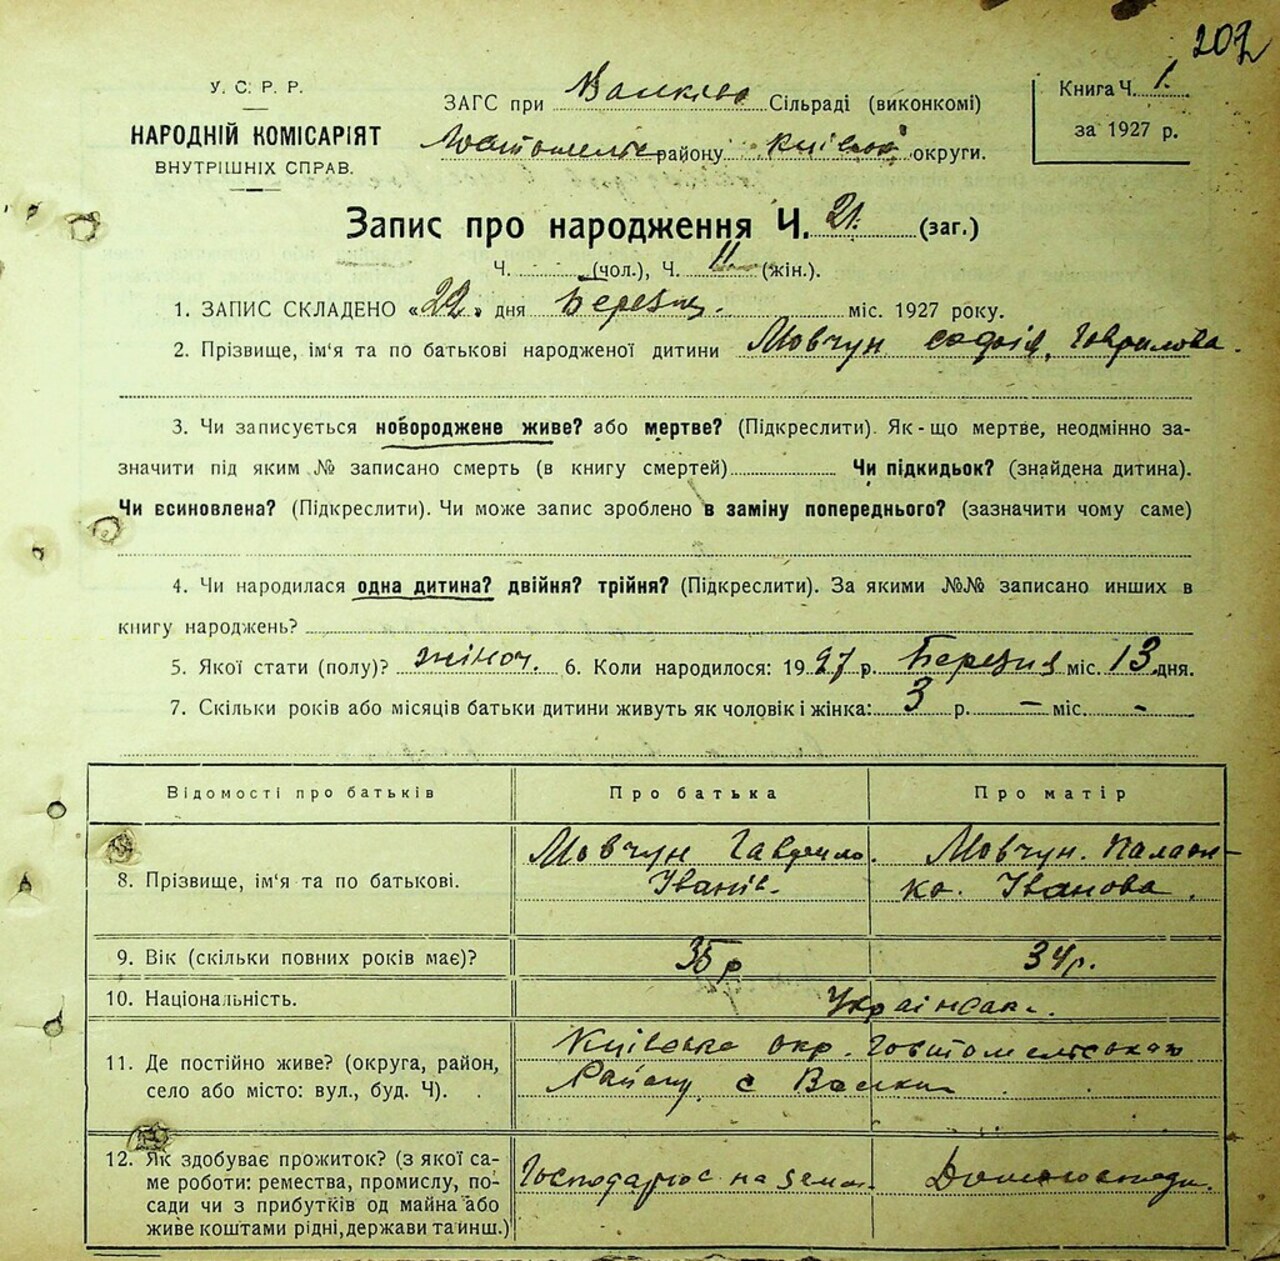 202
У. С. Р. Р.
НАРОДНІЙ КОМІСАРІЯТ
ВНУТРІШНІХ СПРАВ.
ЗАГС при Сільраді (виконкомі)
району округи.
Книга Ч. 1.
за 1927 р.
Запис про народження Ч. 21. (заг.)
Ч. (чол.), Ч. 11 (жін.).
1. ЗАПИС СКЛАДЕНО «22» дня Березня. міс. 1927 року.
2. Прізвище, ім'я та по батькові народженої дитини Мовчун Софія, Гаврилова.
3. Чи записується новороджене живе? або мертве? (Підкреслити). Як-що мертве, неодмінно за-
значити під яким № записано смерть (в книгу смертей) Чи підкидьок? (знайдена дитина).
Чи всиновлена? (Підкреслити). Чи може запис зроблено в заміну попереднього? (зазначити чому саме)
4. Чи народилася одна дитина? двійня? трійня? (Підкреслити). За якими №№ записано инших в
книгу народжень?
5. Якої стати (полу)? жіноч. 6. Коли народилося: 1927 р. Березня міс. 13 дня.
7. Скільки років або місяців батьки дитини живуть як чоловік і жінка: 3 р. — міс. -
Відомості про батьків Про батька Про матір
8. Прізвище, ім'я та по батькові. Мовчун Гаврило Мовчун. Палаж-
ка. Іванова.
9. Вік (скільки повних років має)? 35 р 34 р.
10. Національність.
11. Де постійно живе? (округа, район, Київська окр.
село або місто: вул., буд. Ч). Району, с
12. Як здобуває прожиток? (з якої са-
ме роботи: ремества, промислу, по- Господарює на землі
сади чи з прибутків од майна або
живе коштами рідні, держави та инш.)